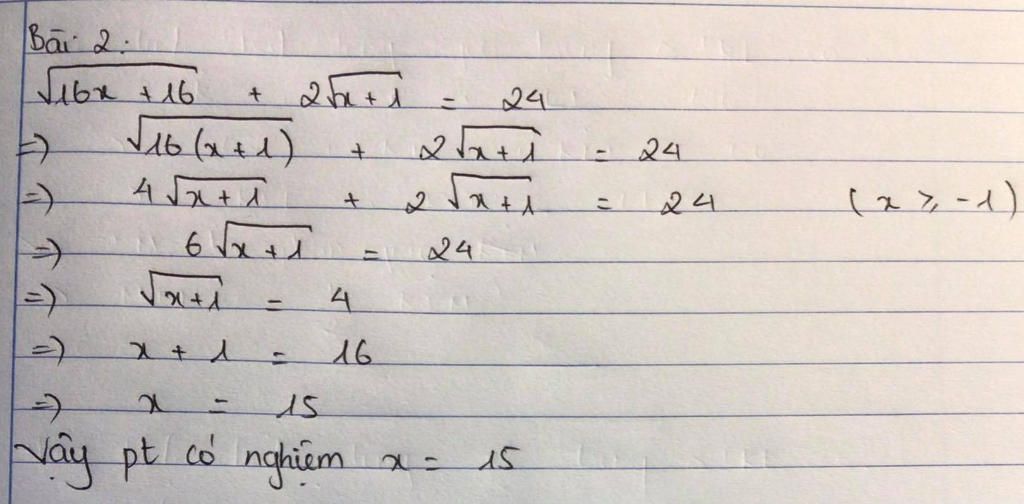 Bài 2:
√(16x + 16) + 2√(x+1) = 24
=) √(16(x+1)) + 2√(x+1) = 24
=) 4√(x+1) + 2√(x+1) = 24 (x ≥ -1)
=) 6√(x+1) = 24
=) √(x+1) = 4
=) x + 1 = 16
=) x = 15
Vậy pt có nghiệm x = 15